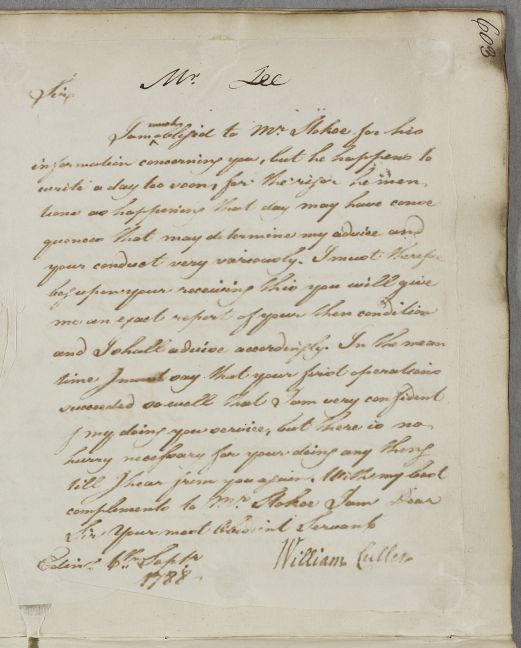 603
Mr. Lee
Sir
I am much obligd to Mr. Stokoe for his
information concerning you, but he happens to
write a day too soon, for the rigor he men
tions as happening that day may have conse
quences that may determine my advice and
your conduct very variously. I must therefor
beg upon your receiving this you will give
me an exact report of your then condition
and I shall advise accordingly. In the mean
time I must say that your first operations
succeeded so well that I am very confident
of my doing you service, but there is no
hurry necessary for your doing any thing
till I hear from you again. With my best
complements to Mr. Stokoe I am Dear
Sir Your most Obedient Servant
Edinr. 6th Septr William Cullen
1788